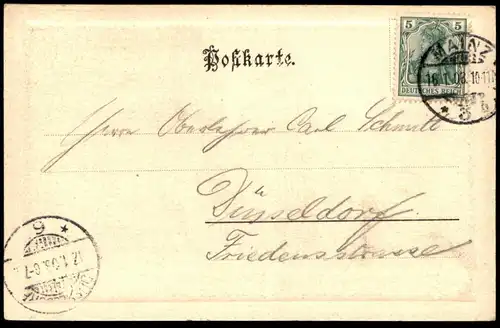 Postkarte.
5 5
DEUTSCHES REICH
MAINZ
16.1.03. 10-11
* 3
Herrn Oberlehrer Carl Schmitt
Düsseldorf.
Friedensstrasse
9 *
17.1.03. 6-7